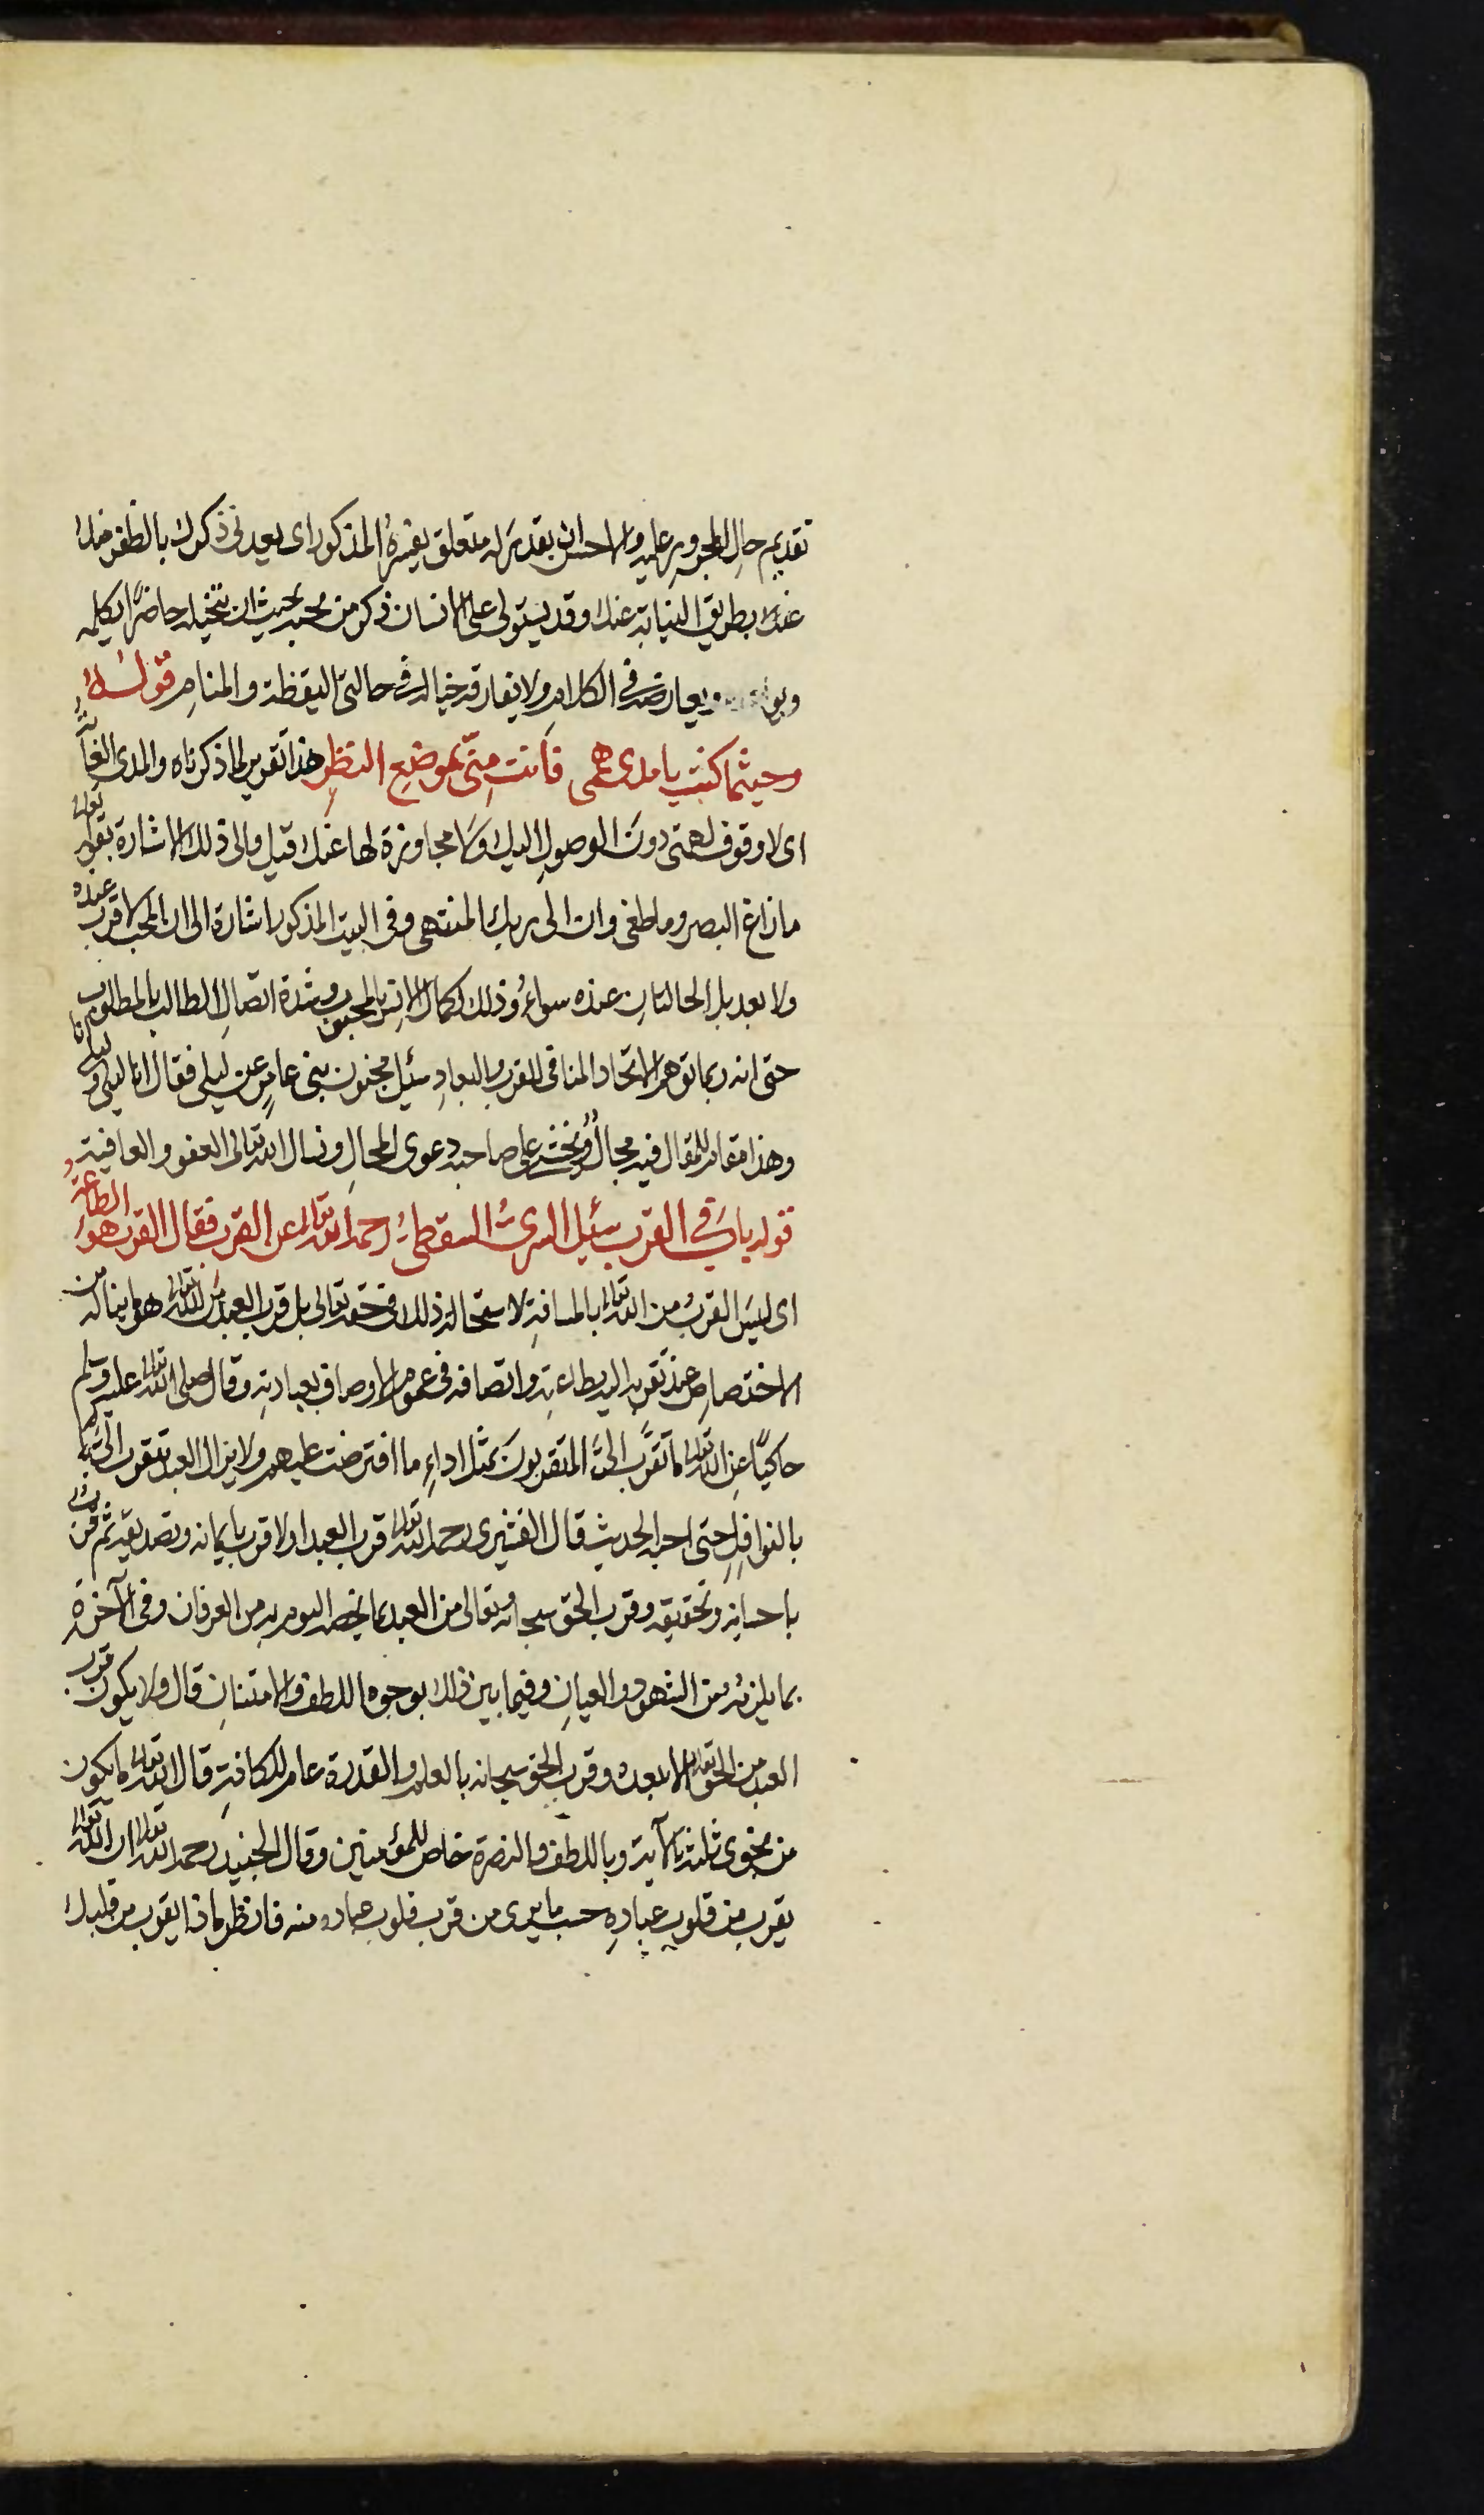 تقديم حال المجرور عليه والاحسن ان يقدر له متعلق يفسره المذكور اى يعدنى ذكرك بالظفر منك
عنك بطريق النيابة عنك وقد يستولى على الانسان ذكر من يحبه بحيث ان يتخيله حاضرًا يكلمه
ويعارضه فى الكلام ولا يفارقه خياله فى حالتى اليقظة والمنام قوله
وحيثما كنت يا مدى هممى فانت منّى بموضع النظر هذا تقرير لما ذكرناه والمدى الغاية
اى لا وقوف لهمتى دون الوصول اليك ولا مجاوزة لها عنك قيل والى ذلك الاشارة بقوله تعالى
ما زاغ البصر وما طغى وان الى ربك المنتهى وفى البيت المذكور اشارة الى ان المحب لا قرب عنده
ولا بعد بل الحالتان عنده سواءٌ وذلك لكمال الانس بالمحبوب وشدة اتصال الطالب بالمطلوب
حتى انه ربما توهم الاتحاد المنافى للقرب والبعاد سئل مجنون بنى عامرٍ عن ليلى فقال انا ليلى وليلى انا
وهذا مقام للمقال فيه مجالٌ ويخشى على صاحبه دعوى المحال ونسال الله تعالى العفو والعافية
قوله باب فى القرب سئل السرىُّ السقطىُّ رحمه الله تعالى عن القرب فقال القرب هو الطاعة
اى ليس القرب من الله تعالى بالمسافة لاستحالة ذلك فى حقه تعالى بل قرب العبد من الله تعالى هو ما يناله من
الاختصاص عند تقربه اليه بطاعته واتصافه فى عموم الاوصاف بعبادته وقال صلى الله تعالى عليه وسلم
حاكيًا عن الله تعالى ما تقرَّب الىَّ المتقربون بمثل اداءِ ما افترضت عليهم ولا يزال العبد يتقرب الىَّ
بالنوافل حتى احبه الحديث قال القشيرى رحمه الله تعالى قرب العبد اولا قرب بايمانه وتصديقه ثم قرب
باحسانه وتحقيقه وقرب الحق سبحانه وتعالى من العبد بما يخصه اليوم به من العرفان وفى الآخرة
بما يلزمه من الشهود والعيان وفيما بين ذلك بوجوه اللطف والامتنان قال ولا يكون قرب
العبد من الحق تعالى الا ببعده وقرب الحق سبحانه بالعلم والقدرة عام للكافة قال الله تعالى ما يكون
من نجوى ثلثة الآية وباللطف والنصرة خاص للمؤمنين وقال الجنيد رحمه الله تعالى ان الله تعالى
يقرب من قلوب عباده حسب ما يرى من قرب قلوب عباده منه فانظر ماذا يقرب من قلبك